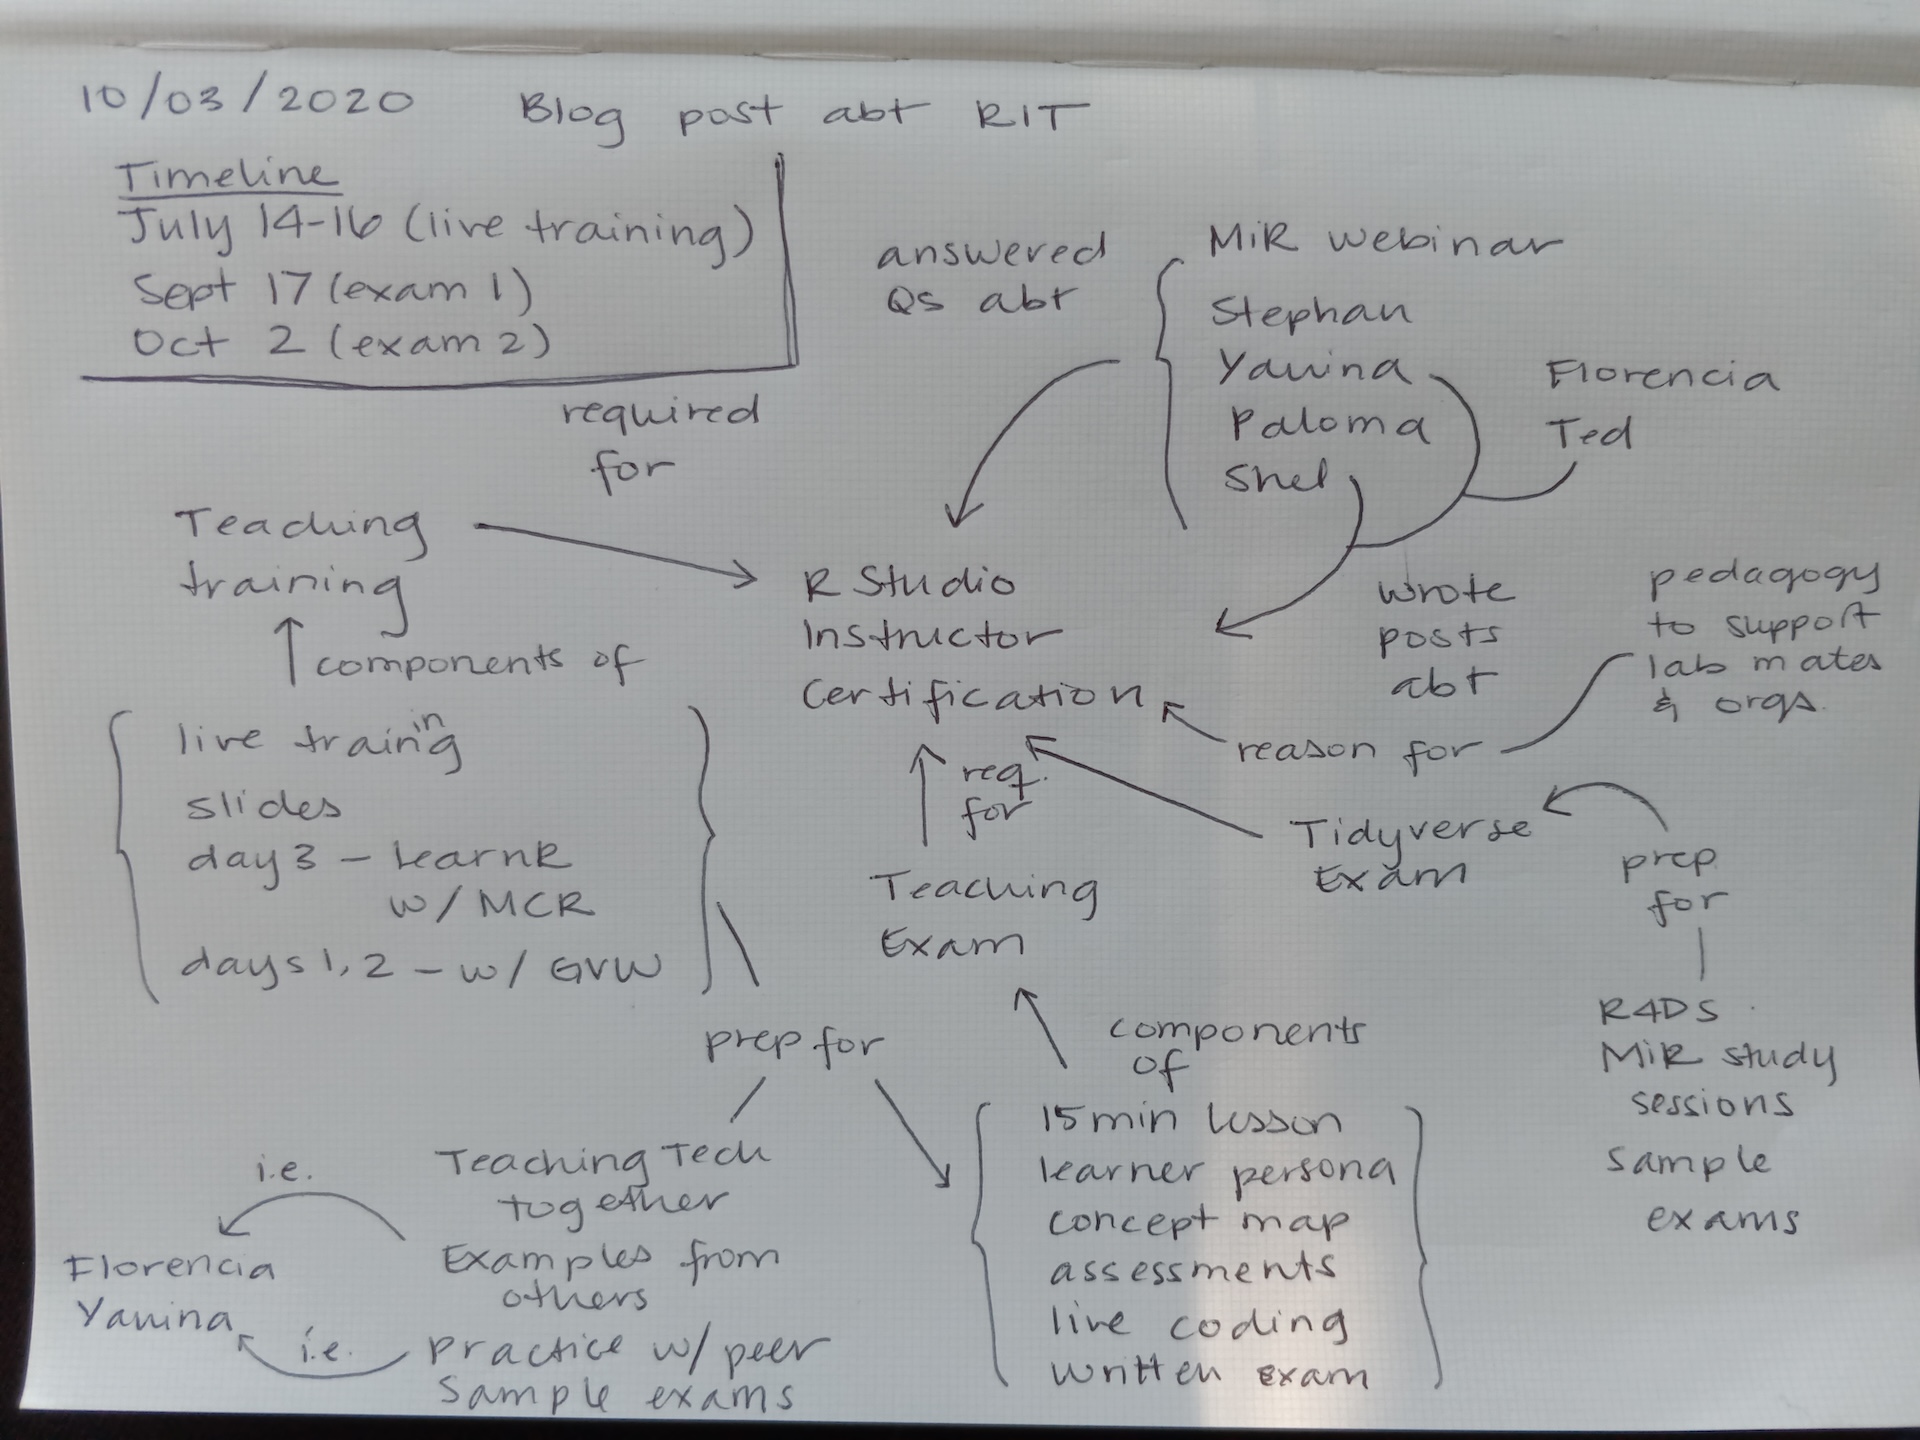 10/03/2020 Blog post abt RIT
Timeline
July 14-16 (live training)
Sept 17 (exam 1)
Oct 2 (exam 2)
answered
Qs abt
MiR webinar
Stephan
Yanina
Paloma
Shel
Florencia
Ted
required
for
Teaching
training
components of
R Studio
Instructor
Certification
wrote
posts
abt
pedagogy
to support
lab mates
& orgs.
reason for
live training
in
slides
day 3 - LearnR
w/ MCR
days 1, 2 - w/ GVW
req.
for
Teaching
Exam
Tidyverse
Exam
prep
for
R4DS
MiR study
sessions
sample
exams
prep for
components
of
15 min lesson
learner persona
concept map
assessments
live coding
written exam
Teaching Tech
together
Examples from
others
Practice w/ peer
Sample exams
i.e.
Florencia
Yanina
i.e.